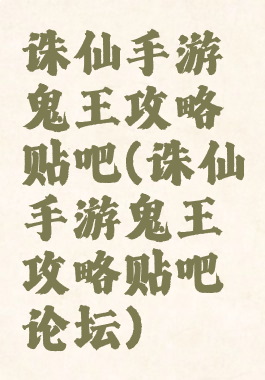 诛仙手游
鬼王攻略
贴吧(诛仙
手游鬼王
攻略贴吧
论坛)